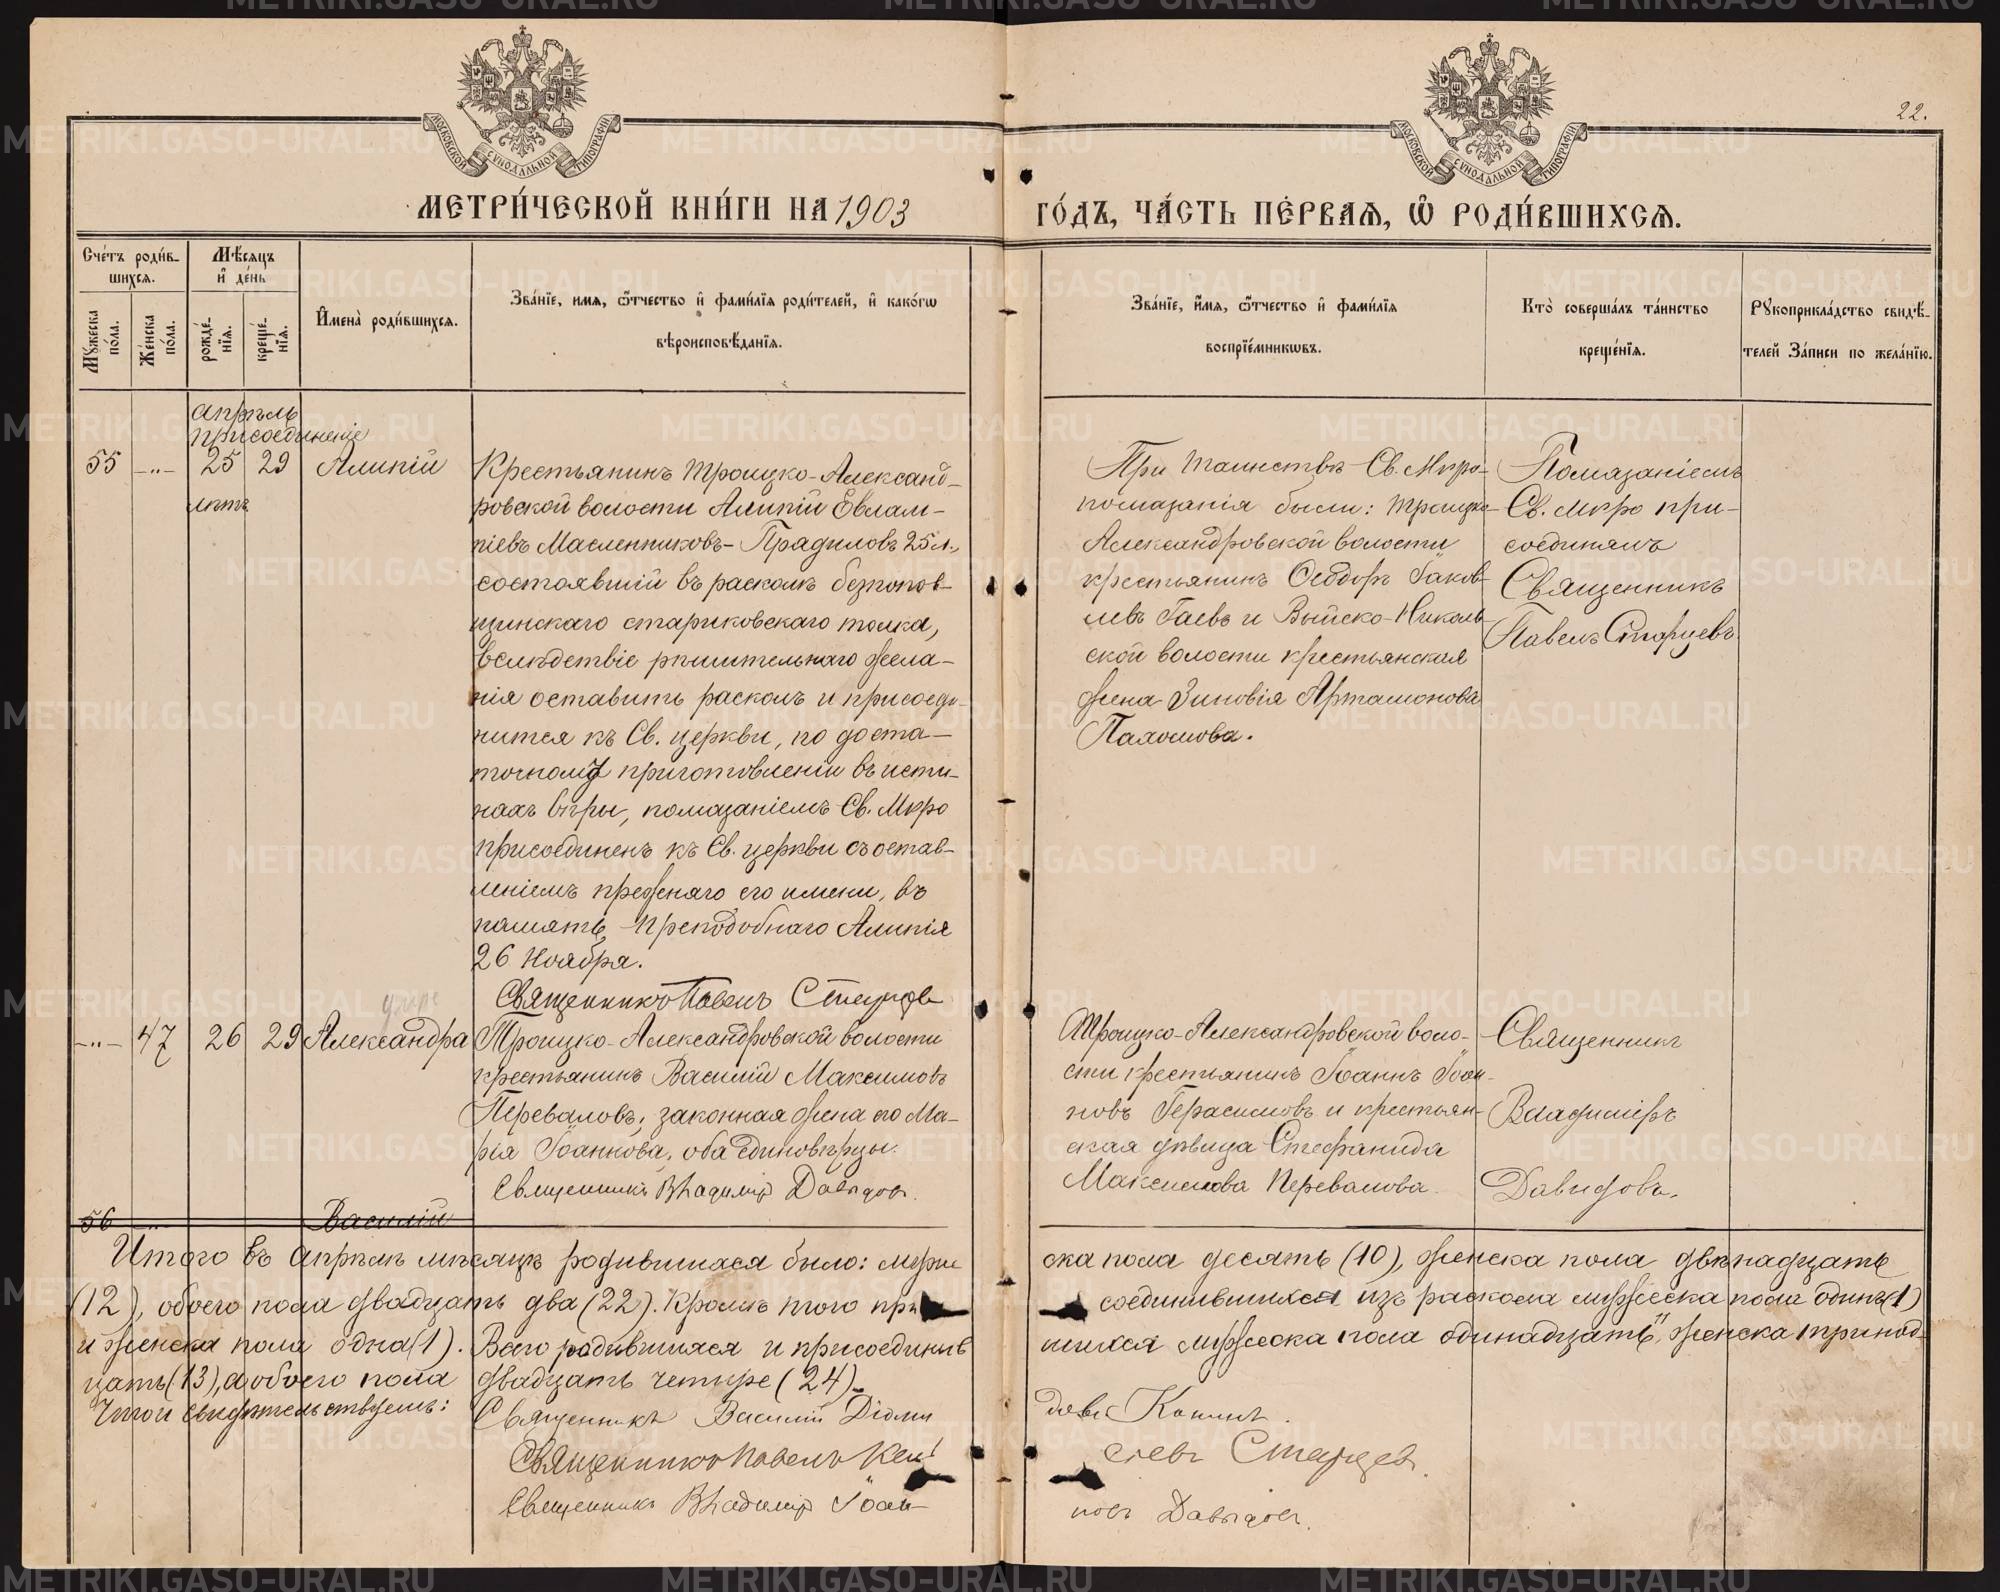 22.
МЕТРИ́ЧЕСКОЙ КНИ́ГИ НА 1903
ГО́ДЪ, ЧА́СТЬ ПЕ́РВАѦ, Ѡ҆ РОДИ́ВШИХСѦ.
Сче́тъ роди́в-
шихсѧ.
Мꙋ́жеска по́ла.
Же́нска по́ла.
Мѣ́сѧцъ
и҆ де́нь
рожде́-
нїѧ.
креще́-
нїѧ.
И҆мена̀ роди́вшихсѧ.
Зва́нїе, имѧ, ѻ҆́тчество и҆ фами́лїѧ роди́телей, и҆ како́гѡ
вѣроисповѣ́данїѧ.
Зва́нїе, и҆́мѧ, ѻ҆́тчество и҆ фами́лїѧ
воспрїе́мникѡвъ.
Кто̀ соверша́лъ та́инство
креще́нїѧ.
Рꙋкоприкла́дство свидѣ́-
телей За́писи по жела́нїю.
апрѣль
присоединеніе
55 —"— 25 29 Алипій
лѣтъ
Крестьянинъ Троицко-Александ-
ровской волости Алипій Евлам-
піевъ Масленниковъ-Прадиловъ 25 л.,
состоявшій въ расколѣ безпопов-
щинскаго стариковскаго толка,
вслѣдствіе рѣшительнаго жела-
нія оставить расколъ и присоеди-
нится къ Св. церкви, по доста-
точному приготовленіи въ исти-
нахъ вѣры, помазаніемъ Св. Мѵро
присоединенъ къ Св. церкви съ остав-
леніемъ прежняго его имени, въ
память преподобнаго Алипія
26 Ноября.
Священникъ Павелъ Старцевъ
При таинствѣ Св. Мѵро-
помазанія были: Троицко-
Александровской волости
крестьянинъ Ѳеодоръ Іаков-
левъ Гаевъ и Выйско-Николь-
ской волости крестьянская
жена Зиновія Артамонова
Пахомова.
Помазаніемъ
Св. Мѵро при-
соединялъ
Священникъ
Павелъ Старцевъ
—"— 47 26 29 Александра
Троицко-Александровской волости
крестьянинъ Василій Максимовъ
Переваловъ, законная жена его Ма-
рія Іоаннова, оба единовѣрцы.
Священникъ Владиміръ Давыдовъ.
Троицко-Александровской воло-
сти крестьянинъ Іоаннъ Іоан-
новъ Герасимовъ и крестьян-
ская дѣвица Стефанида
Максимова Перевалова.
Священникъ
Владиміръ
Давыдовъ.
56 —"— Василій
Итого въ Апрѣлѣ мѣсяцѣ родившихся было: муже
ска пола десять (10), женска пола двѣнадцать
(12), обоего пола двадцать два (22). Кромѣ того при
соединившихся изъ раскола мужеска пола одинъ (1)
и женска пола одна (1). Всего родившихся и присоединив
шихся мужеска пола одинадцать, женска тринад-
цать (13), а обоего пола двадцать четыре (24).
Въ чемъ свидѣтельствуемъ:
Священникъ Василій Діоми
довъ Конинъ.
Священникъ Павелъ
Старцевъ.
Священникъ Владиміръ Іоан-
новъ Давыдовъ.
METRIKI.GASO-URAL.RU